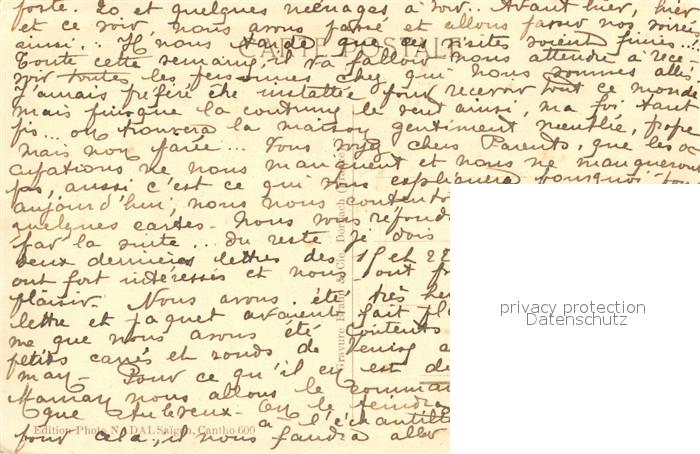 forte. 20 et quelques ménages à voir.. Avant hier, hier
et ce soir, nous avons passé et allons passer nos soirées
ainsi.. Il nous tarde que ces visites soient finies...
CARTE POSTALE
Toute cette semaine, il va falloir nous attendre à rece-
voir toutes les personnes chez qui nous sommes allés
J'aurais préféré être installée pour recevoir tout ce monde
mais puisque la coutume le veut ainsi, ma foi tant
pis... on trouvera la maison gentiment meublée, propre
mais non parée... Vous voyez chers Parents, que les oc-
cupations ne nous manquent et nous ne manquerons
pas, aussi c'est ce qui vous expliquera pourquoi
aujourd'hui, nous nous contentons
quelques cartes. Nous vous répondrons
par la suite... Du reste je dois
deux dernières lettres des 15 et 22
ont fort intéressés et nous ont
plaisir. Nous avons été très
lettre et paquet avaient fait
me que nous avons été contents
petits carrés et ronds de Venise
may. Pour ce qu'il en est de
Maman nous allons le
que
à l'échantillon
pour cela, il nous faudra aller
Gravure Braun & Cie, Dornach
Edition-Photo NADAL Saïgon, Cantho 600
privacy protection
Datenschutz